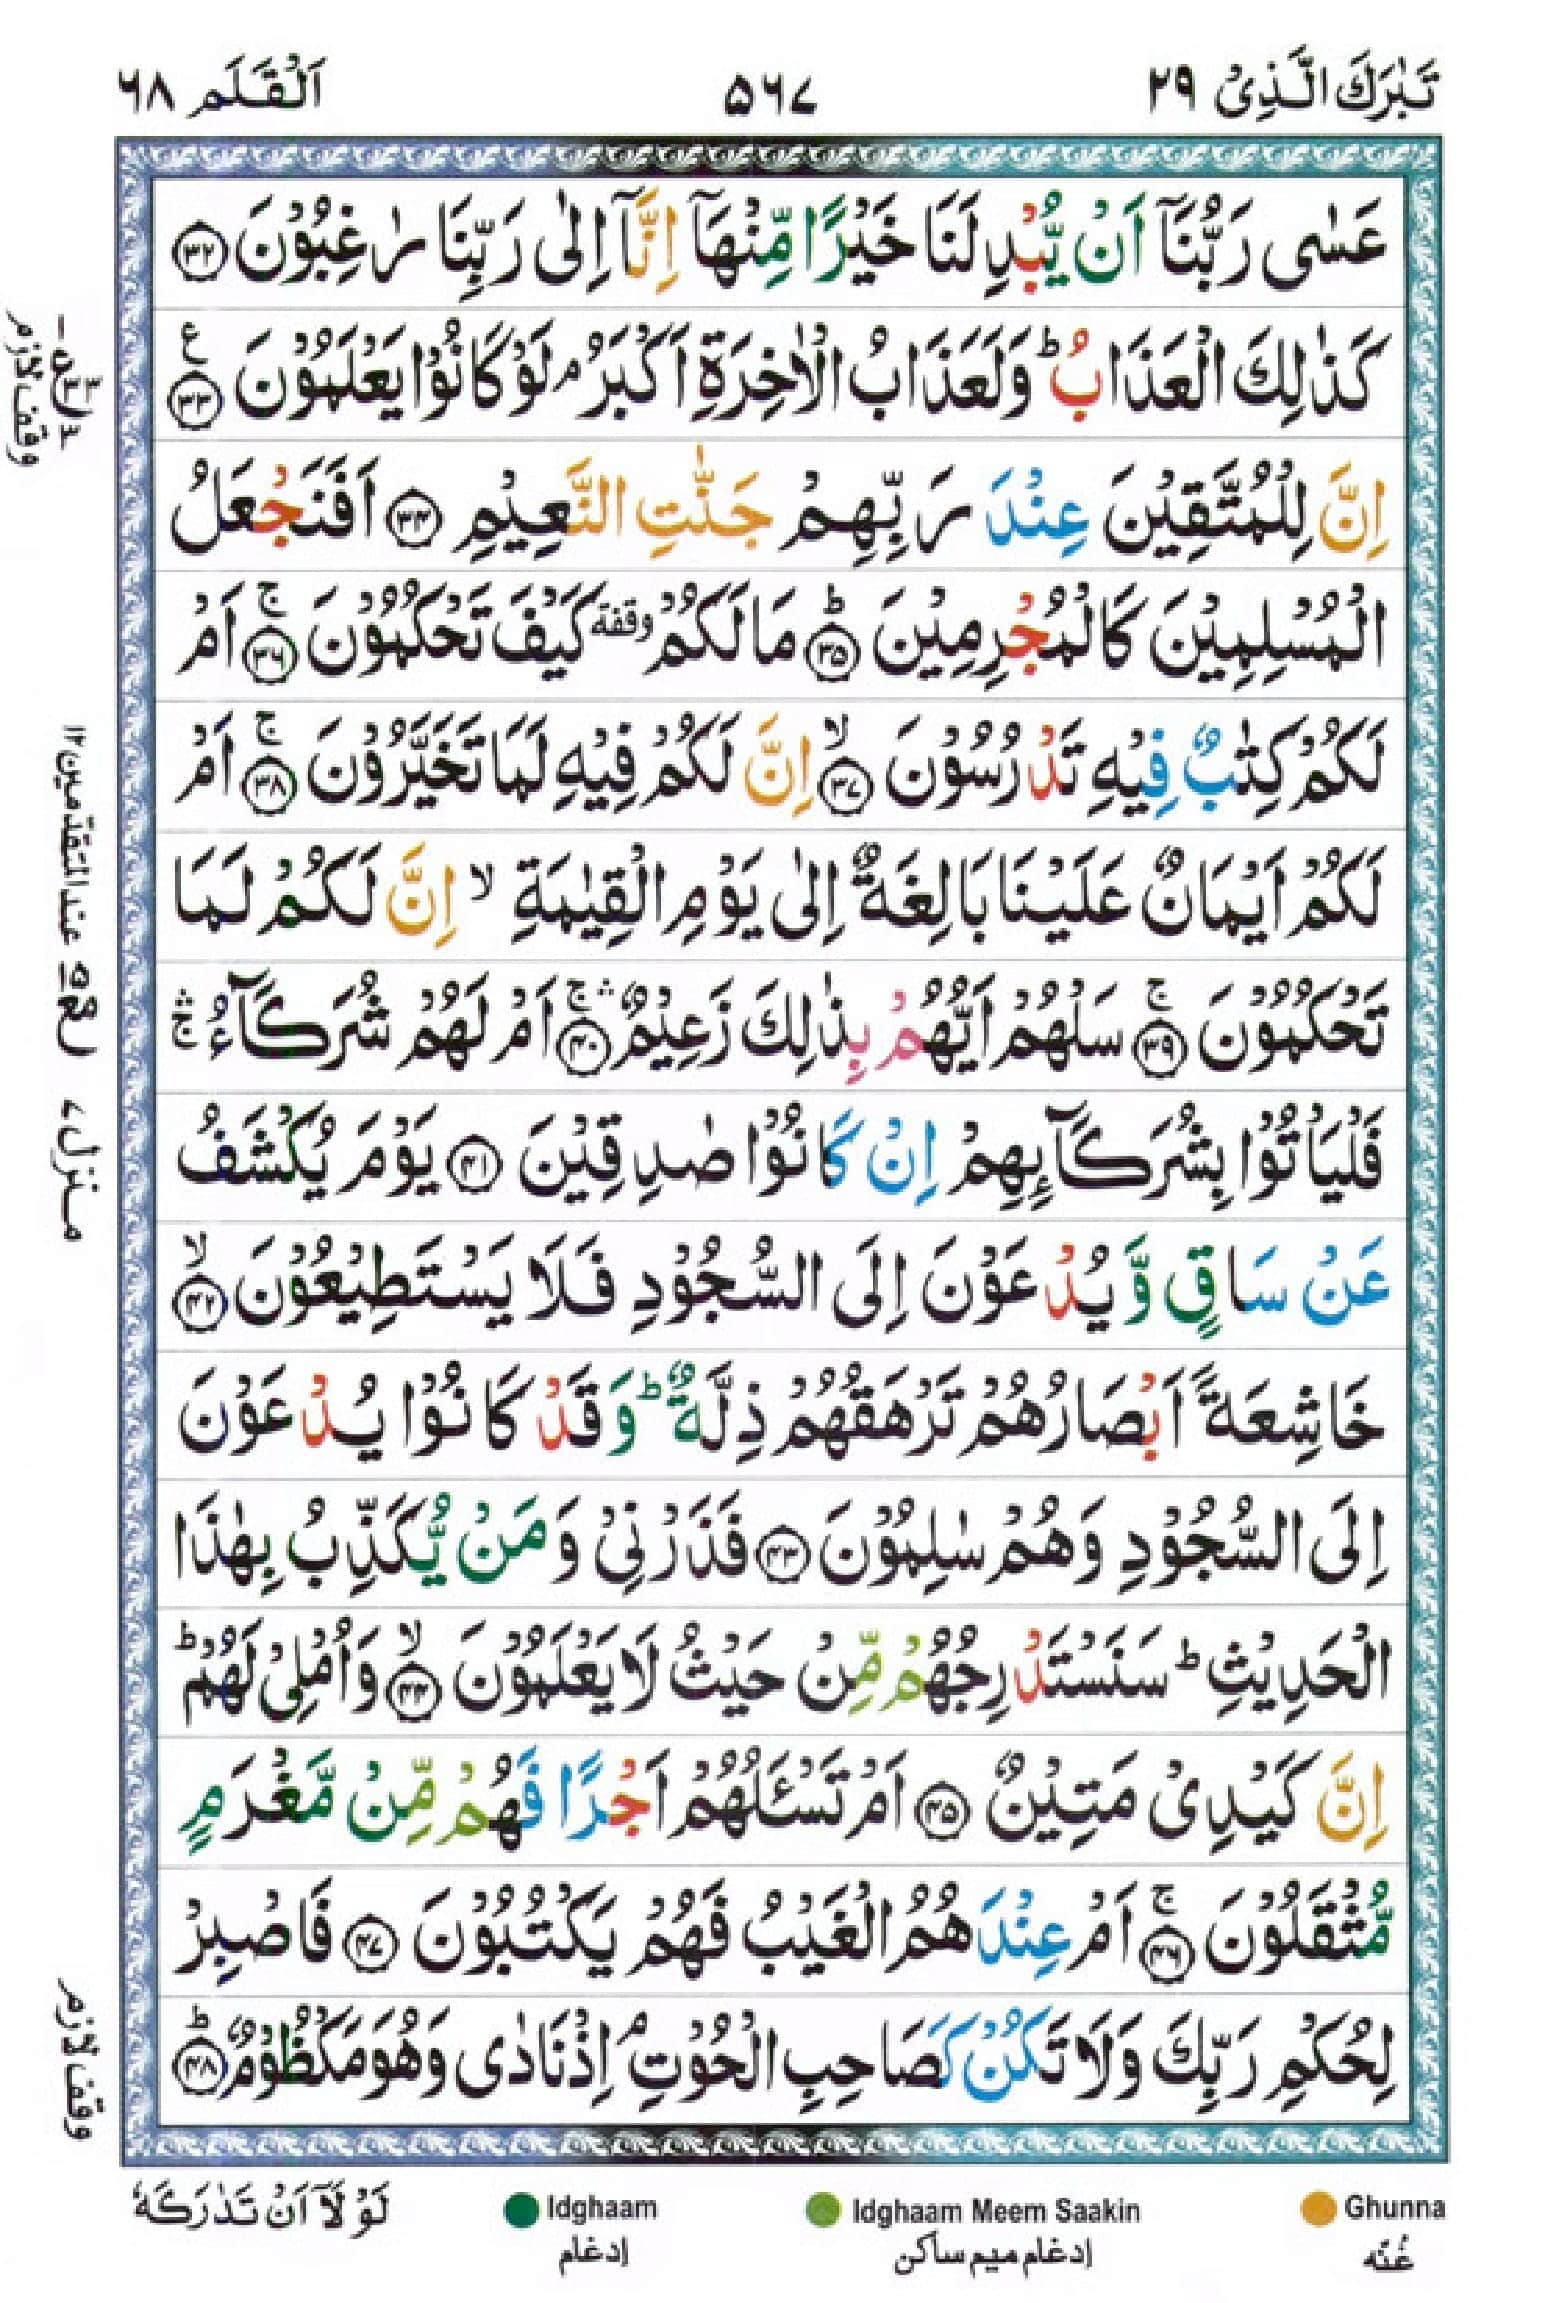 تَبٰرَكَ الَّذِیْ ۲۹
۵۶۷
اَلْقَلَم ۶۸
عَسٰی رَبُّنَاۤ اَنْ یُّبْدِلَنَا خَیْرًا مِّنْهَاۤ اِنَّاۤ اِلٰی رَبِّنَا رٰغِبُوْنَ ﴿۳۲﴾
كَذٰلِكَ الْعَذَابُ ؕ وَلَعَذَابُ الْاٰخِرَةِ اَكْبَرُ ۘ لَوْ كَانُوْا یَعْلَمُوْنَ ﴿۳۳﴾ ع
اِنَّ لِلْمُتَّقِیْنَ عِنْدَ رَبِّهِمْ جَنّٰتِ النَّعِیْمِ ﴿۳۴﴾ اَفَنَجْعَلُ
الْمُسْلِمِیْنَ كَالْمُجْرِمِیْنَ ﴿۳۵﴾ؕ مَا لَكُمْ وقفة كَیْفَ تَحْكُمُوْنَ ﴿۳۶﴾ۚ اَمْ
لَكُمْ كِتٰبٌ فِیْهِ تَدْرُسُوْنَ ﴿۳۷﴾ۙ اِنَّ لَكُمْ فِیْهِ لَمَا تَخَیَّرُوْنَ ﴿۳۸﴾ۚ اَمْ
لَكُمْ اَیْمَانٌ عَلَیْنَا بَالِغَةٌ اِلٰی یَوْمِ الْقِیٰمَةِ ۙ اِنَّ لَكُمْ لَمَا
تَحْكُمُوْنَ ﴿۳۹﴾ۚ سَلْهُمْ اَیُّهُمْ بِذٰلِكَ زَعِیْمٌ ﴿۴۰﴾ۛۚ اَمْ لَهُمْ شُرَكَآءُ ۛۚ
فَلْیَاْتُوْا بِشُرَكَآىِٕهِمْ اِنْ كَانُوْا صٰدِقِیْنَ ﴿۴۱﴾ یَوْمَ یُكْشَفُ
عَنْ سَاقٍ وَّیُدْعَوْنَ اِلَی السُّجُوْدِ فَلَا یَسْتَطِیْعُوْنَ ﴿۴۲﴾ۙ
خَاشِعَةً اَبْصَارُهُمْ تَرْهَقُهُمْ ذِلَّةٌ ؕ وَقَدْ كَانُوْا یُدْعَوْنَ
اِلَی السُّجُوْدِ وَهُمْ سٰلِمُوْنَ ﴿۴۳﴾ فَذَرْنِیْ وَمَنْ یُّكَذِّبُ بِهٰذَا
الْحَدِیْثِ ؕ سَنَسْتَدْرِجُهُمْ مِّنْ حَیْثُ لَا یَعْلَمُوْنَ ﴿۴۴﴾ۙ وَاُمْلِیْ لَهُمْ ؕ
اِنَّ كَیْدِیْ مَتِیْنٌ ﴿۴۵﴾ اَمْ تَسْـَٔلُهُمْ اَجْرًا فَهُمْ مِّنْ مَّغْرَمٍ
مُّثْقَلُوْنَ ﴿۴۶﴾ۚ اَمْ عِنْدَهُمُ الْغَیْبُ فَهُمْ یَكْتُبُوْنَ ﴿۴۷﴾ فَاصْبِرْ
لِحُكْمِ رَبِّكَ وَلَا تَكُنْ كَصَاحِبِ الْحُوْتِ ۘ اِذْ نَادٰی وَهُوَ مَكْظُوْمٌ ﴿۴۸﴾ؕ
وقف لازم
عند المتقدمین ۱۲
منزل ۷
وقف لازم
لَوْ لَاۤ اَنْ تَدٰرَكَهٗ
Idghaam
إدغام
Idghaam Meem Saakin
إدغام میم ساكن
Ghunna
غُنّه